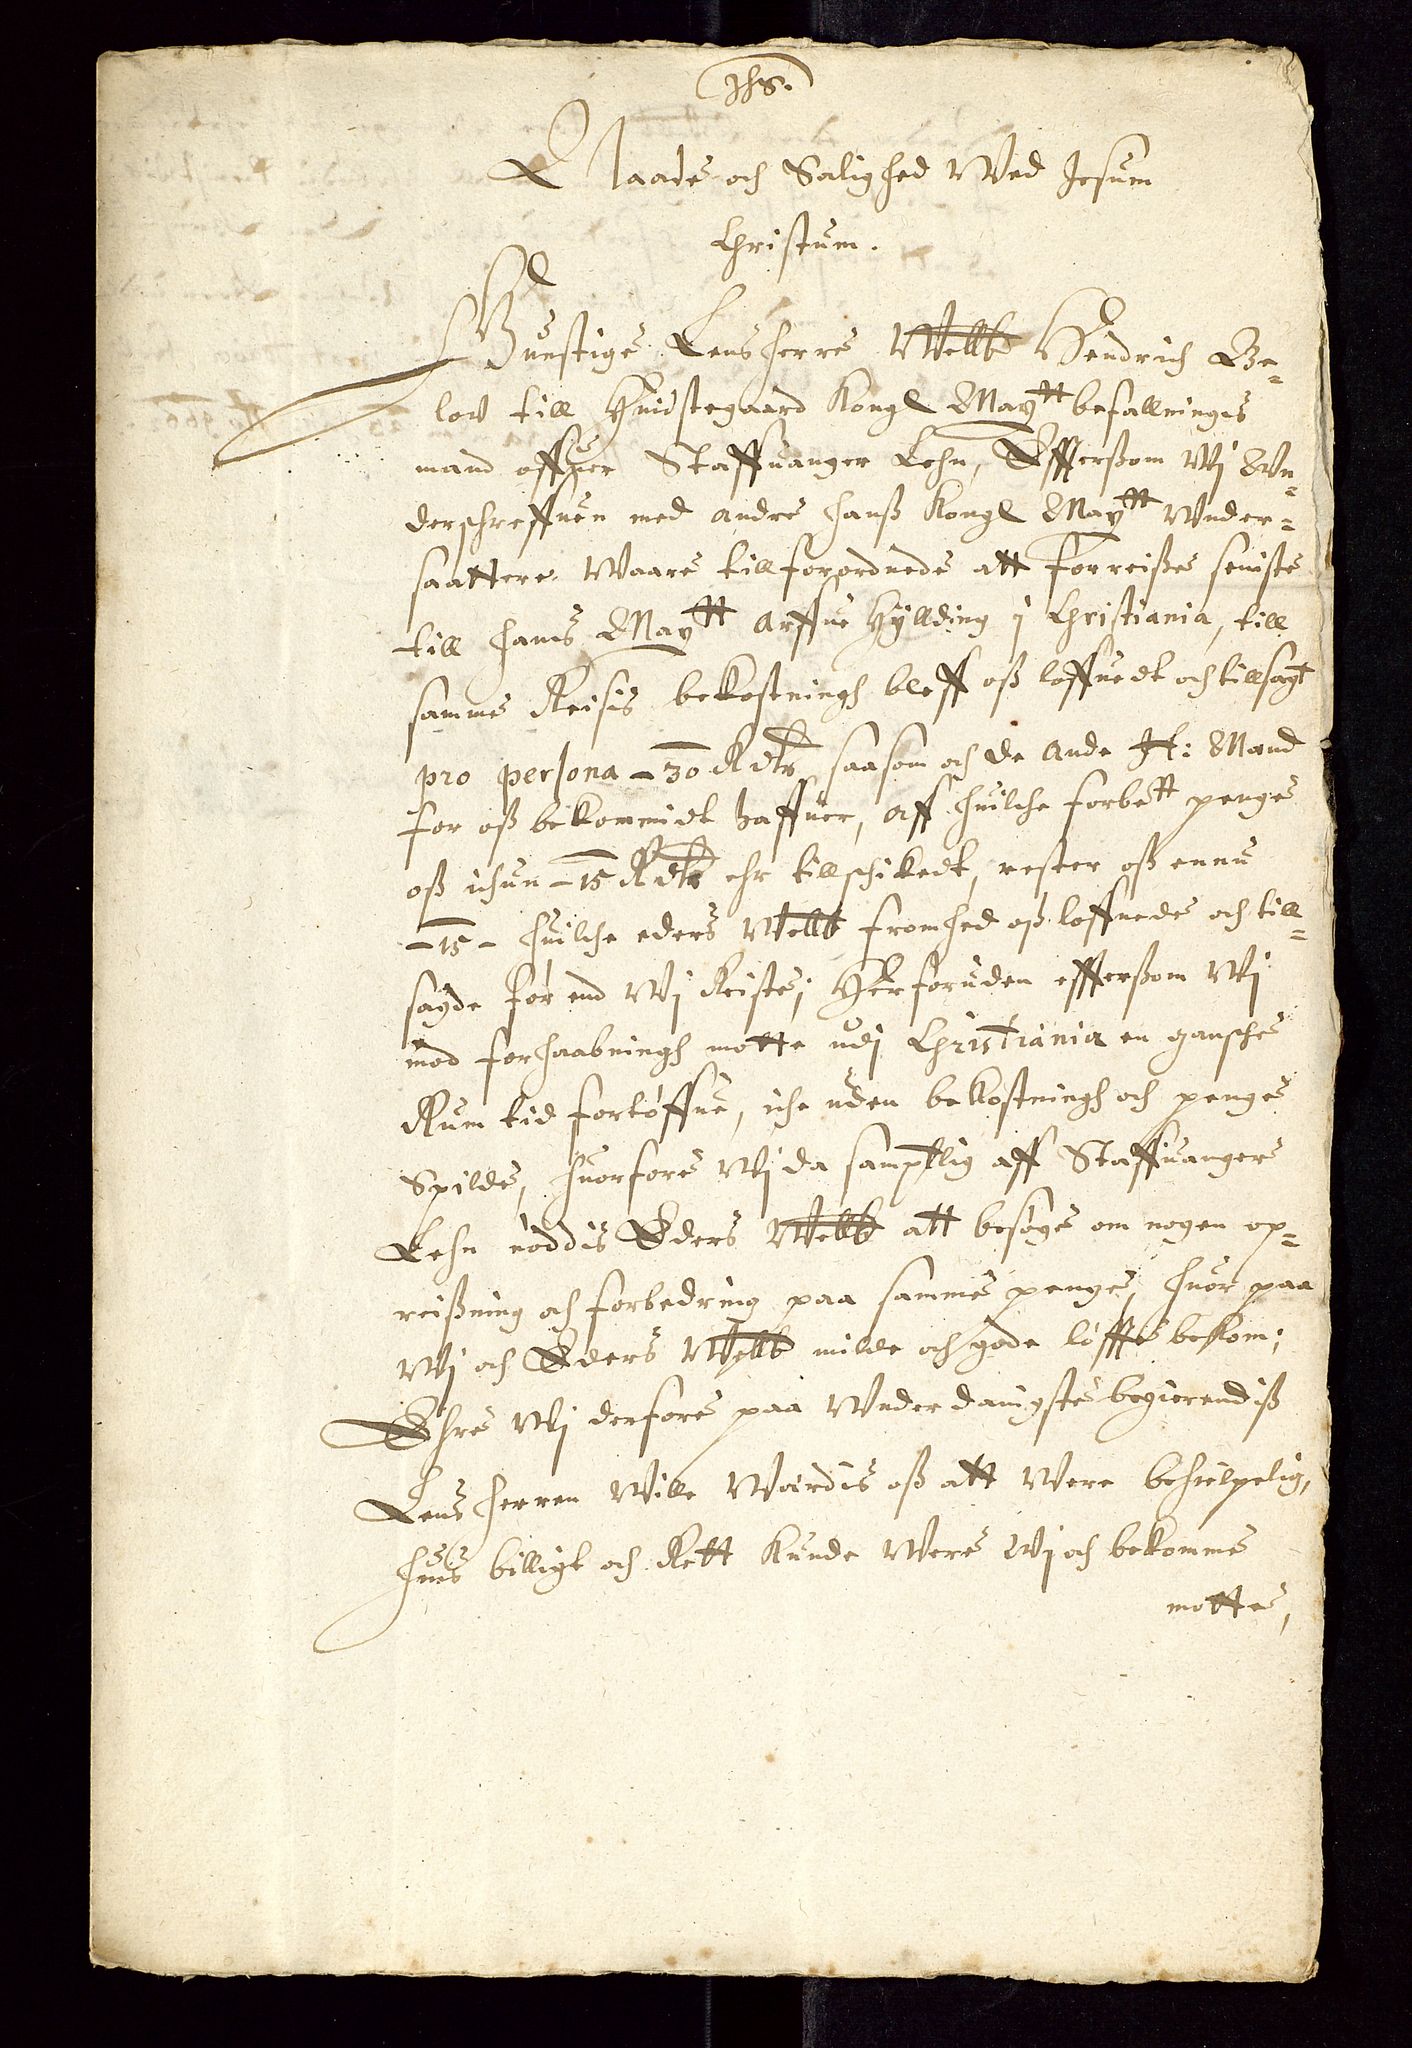 Jhs.
Naade och Salighed Wed Jesum
Christum.
Gunstige Lensherre Welb Hendrich Be¬
low till Huidstegaard Kongl Maytt befallningis
mand offuer Staffuanger Lehn, Effterßom Wj Wn¬
derschreffuen med andre hanß Kongl Maytt Wnder¬
saattere Waare tillforordnede att forreiße seniste
till hans Maytt Arffue Hÿllding i Christiania, till
samme Reisis bekostningh bleff oß loffuedt och tillsagt
pro persona – 30 Rdlr saasom och de ande Mand
for oß bekommidt haffuer, Aff huilche forbett penge
oß ichun – 15 Rdlr ehr tillschikedt, rester oß ennu
– 15 – huilche eders Welb fromhed oß loffuede och till¬
sagde før end Wj Reiste; Herforuden effterßom Wj
mod forhaabningh motte udj Christiania en gansche
Rum tid fortøffue, iche uden bekostningh och penge
Spilde, huorfore Wj da samptlig aff Staffuangers
Lehn nøddis Eders Welb att besøge om nogen op¬
reißning och forbedring paa samme penge, huor paa
Wj och Eders Welb milde och gode løffte bekom;
Ehre Wj derfore paa Wnderdanigste begierendiß
Lensherren Wille Wærdis oß att Were behielpelig,
huis billigt och Rett kunde Were Wj och bekomme
motte,